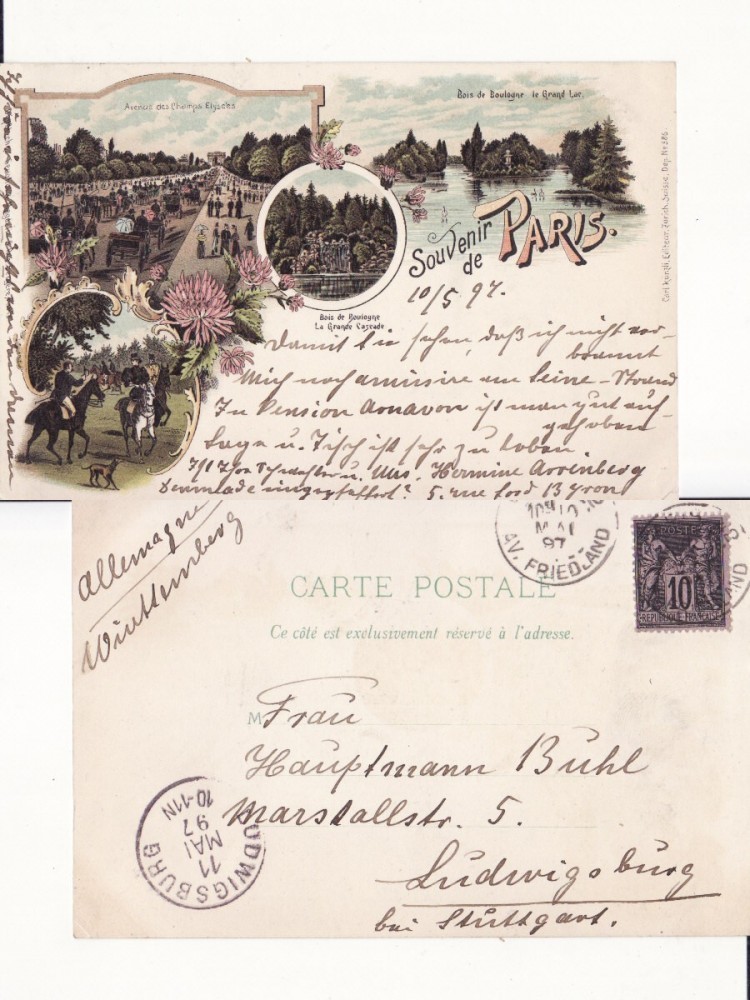 Avenue des Champs Elysées
Bois de Boulogne le Grand Lac.
Bois de Boulogne
La Grande Cascade
Souvenir
de PARIS.
Carl Künzli, Editeur, Zürich, Suisse, Dép. No 286.
10/5 97.
Damit Sie sehen, daß ich nicht ver-
brannt
Mich noch amüsire am Seine-Strand
In Pension Arnavon ist man gut auf-
gehoben
Lage u. Tisch ist sehr zu loben.
u. Mrs. Hermine Arrenberg
5. rue Lord Byron
Allemagne
Württemberg
10
MAI
97
AV. FRIEDLAND
POSTE
10
REPUBLIQUE FRANÇAISE
CARTE POSTALE
Ce côté est exclusivement réservé à l'adresse.
M
Frau
Hauptmann Bühl
Marstallstr. 5.
Ludwigsburg
bei Stuttgart.
LUDWIGSBURG
11
MAI
97
10-11N